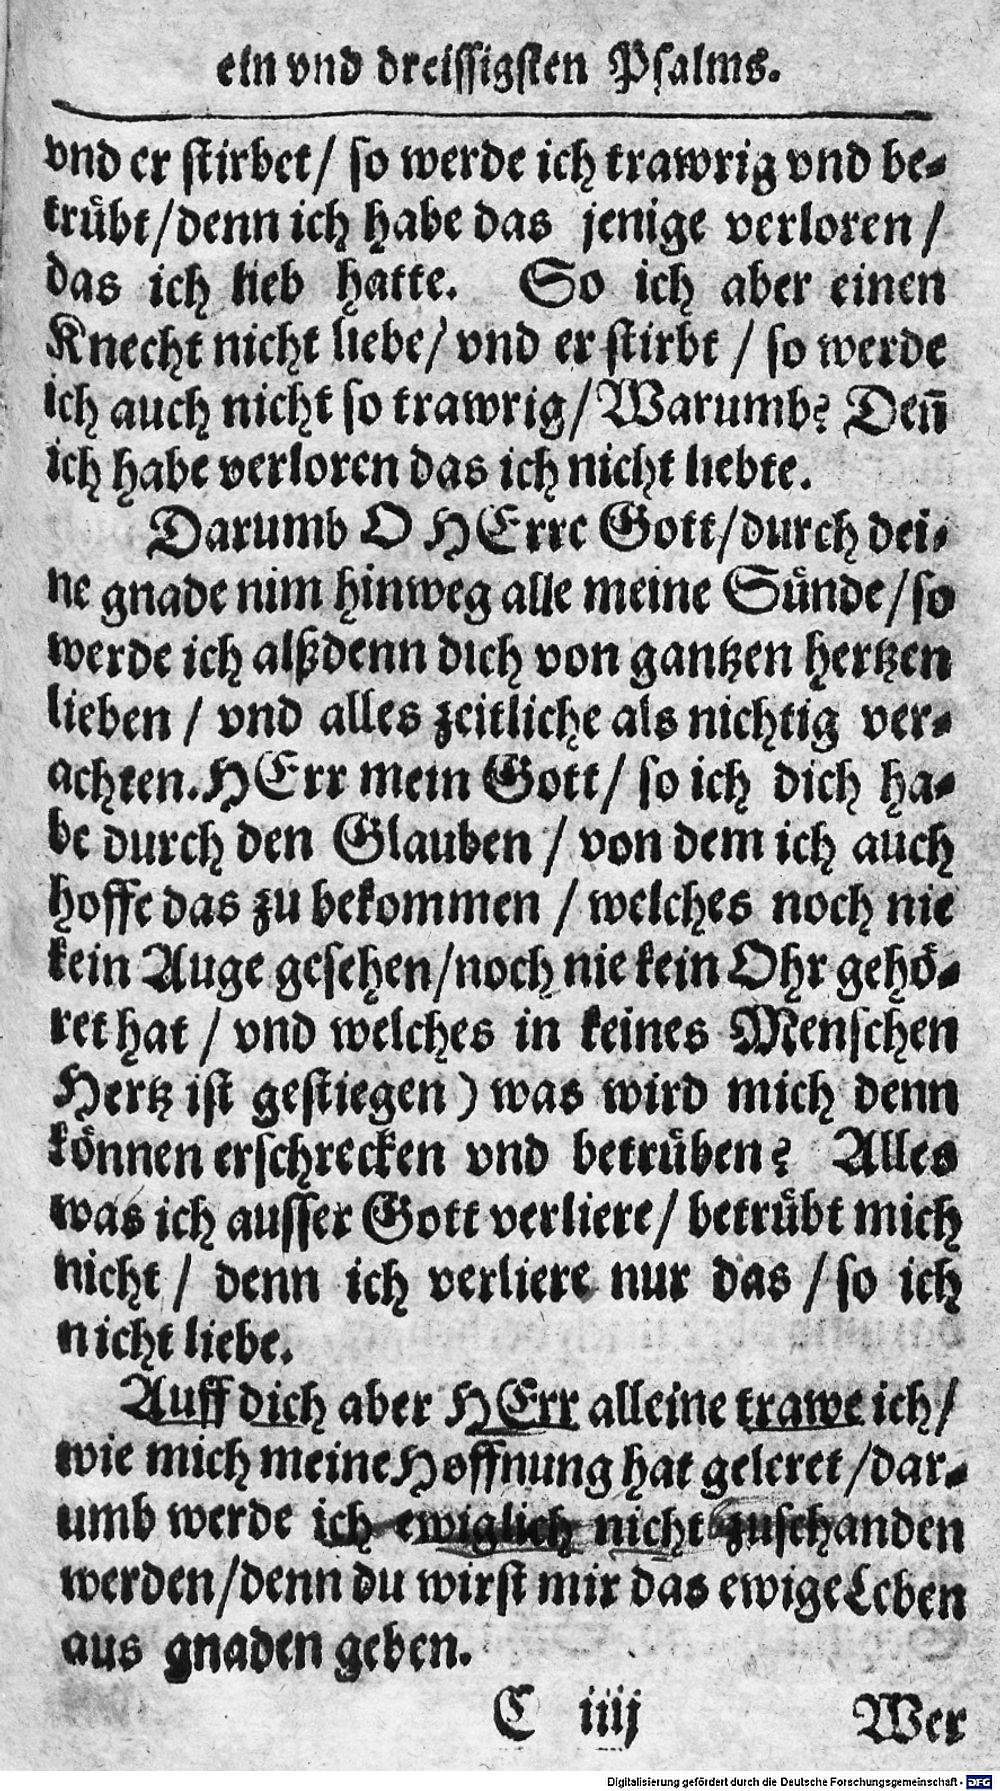 ein vnd dreissigsten Psalms.
vnd er stirbet/ so werde ich trawrig vnd be-
trübt/denn ich habe das jenige verloren/
das ich lieb hatte. So ich aber einen
Knecht nicht liebe/ vnd er stirbt / so werde
ich auch nicht so trawrig/ Warumb? Deñ
ich habe verloren das ich nicht liebte.
Darumb O HErre Gott/durch dei-
ne gnade nim hinweg alle meine Sünde/so
werde ich alßdenn dich von gantzen hertzen
lieben / vnd alles zeitliche als nichtig ver-
achten. HErr mein Gott/ so ich dich ha-
be durch den Glauben / von dem ich auch
hoffe das zu bekommen / welches noch nie
kein Auge gesehen/noch nie kein Ohr gehö-
ret hat / vnd welches in keines Menschen
Hertz ist gestiegen) was wird mich denn
können erschrecken vnd betrüben? Alles
was ich ausser Gott verliere/ betrübt mich
nicht / denn ich verliere nur das / so ich
nicht liebe.
Auff dich aber HErr alleine trawe ich/
wie mich meine Hoffnung hat geleret /dar-
umb werde ich ewiglich nicht zuschanden
werden/denn du wirst mir das ewige Leben
aus gnaden geben.
C iiij Wer
Digitalisierung gefördert durch die Deutsche Forschungsgemeinschaft - DFG